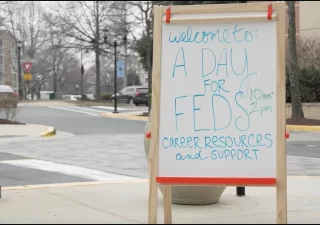 welcome to:
A DAY
FOR
FEDS
10am
2pm
CAREER RESOURCES
and SUPPORT